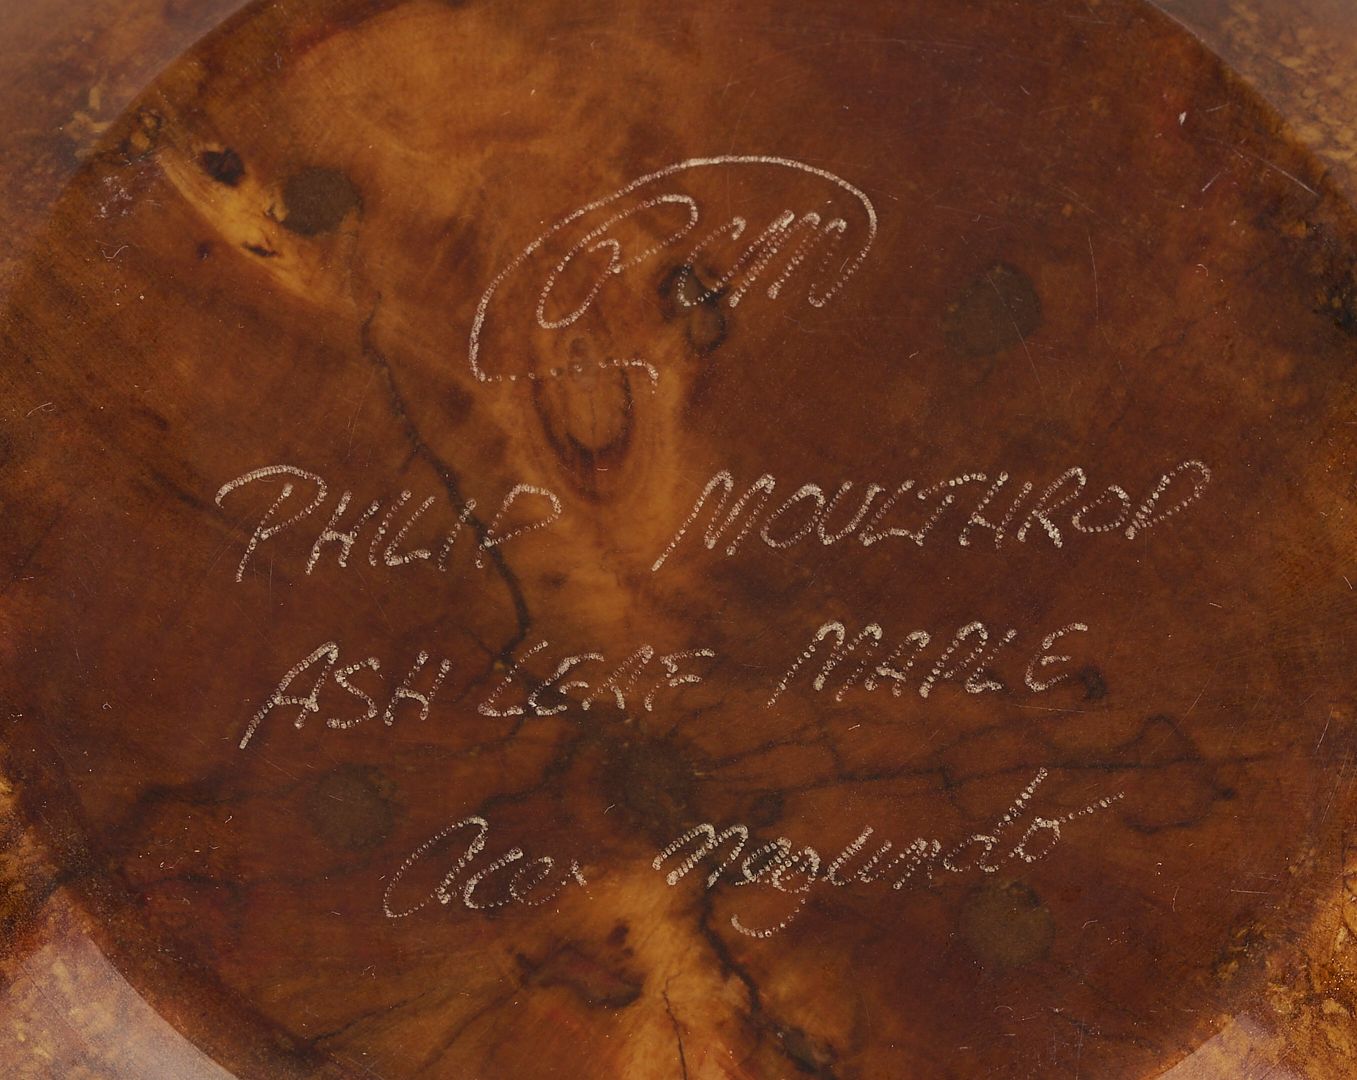 PCM
PHILIP MOULTHROP
ASH LEAF MAPLE
Acer negundo